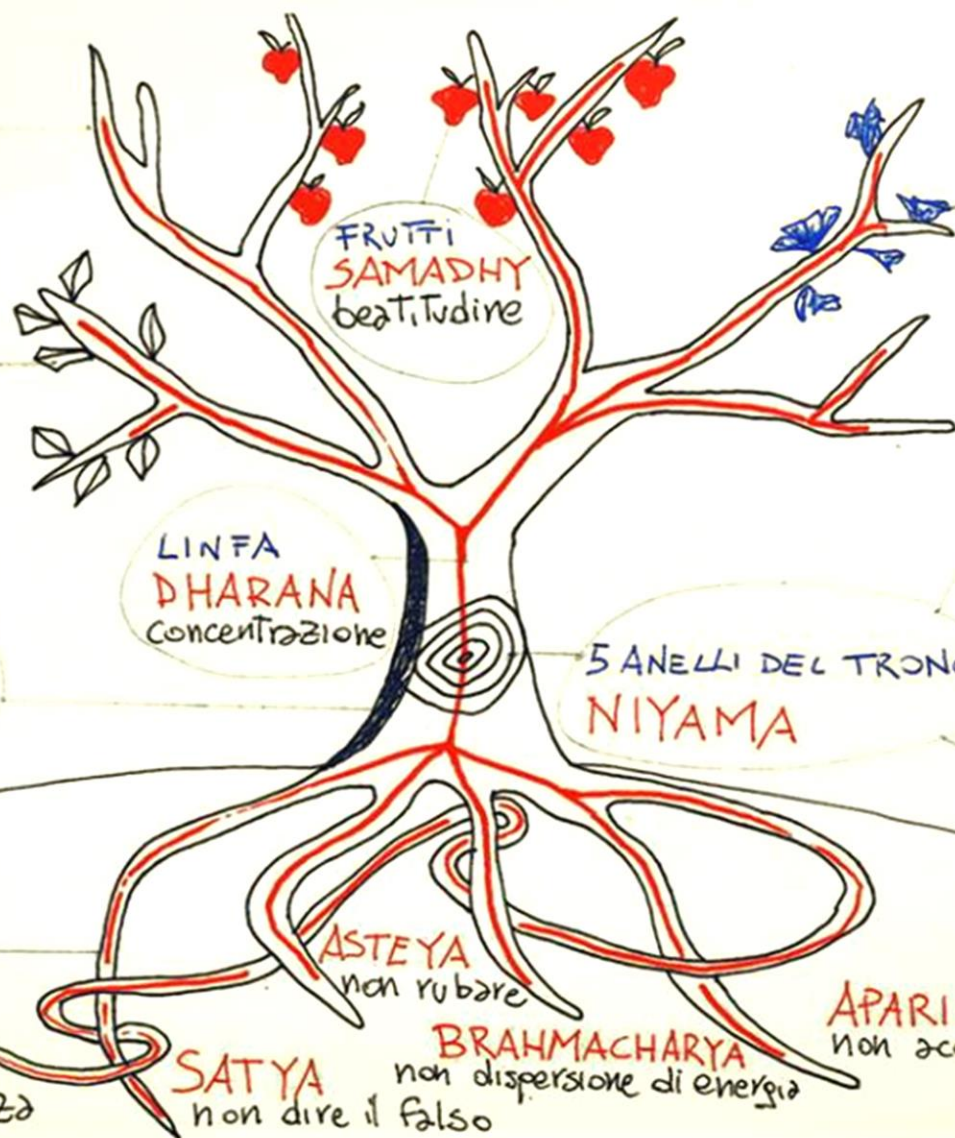 FRUTTI
SAMADHY
beatitudine
LINFA
DHARANA
concentrazione
5 ANELLI DEL TRONC
NIYAMA
ASTEYA
non rubare
BRAHMACHARYA
non dispersione di energia
APARI
non acc
SATYA
non dire il falso
za